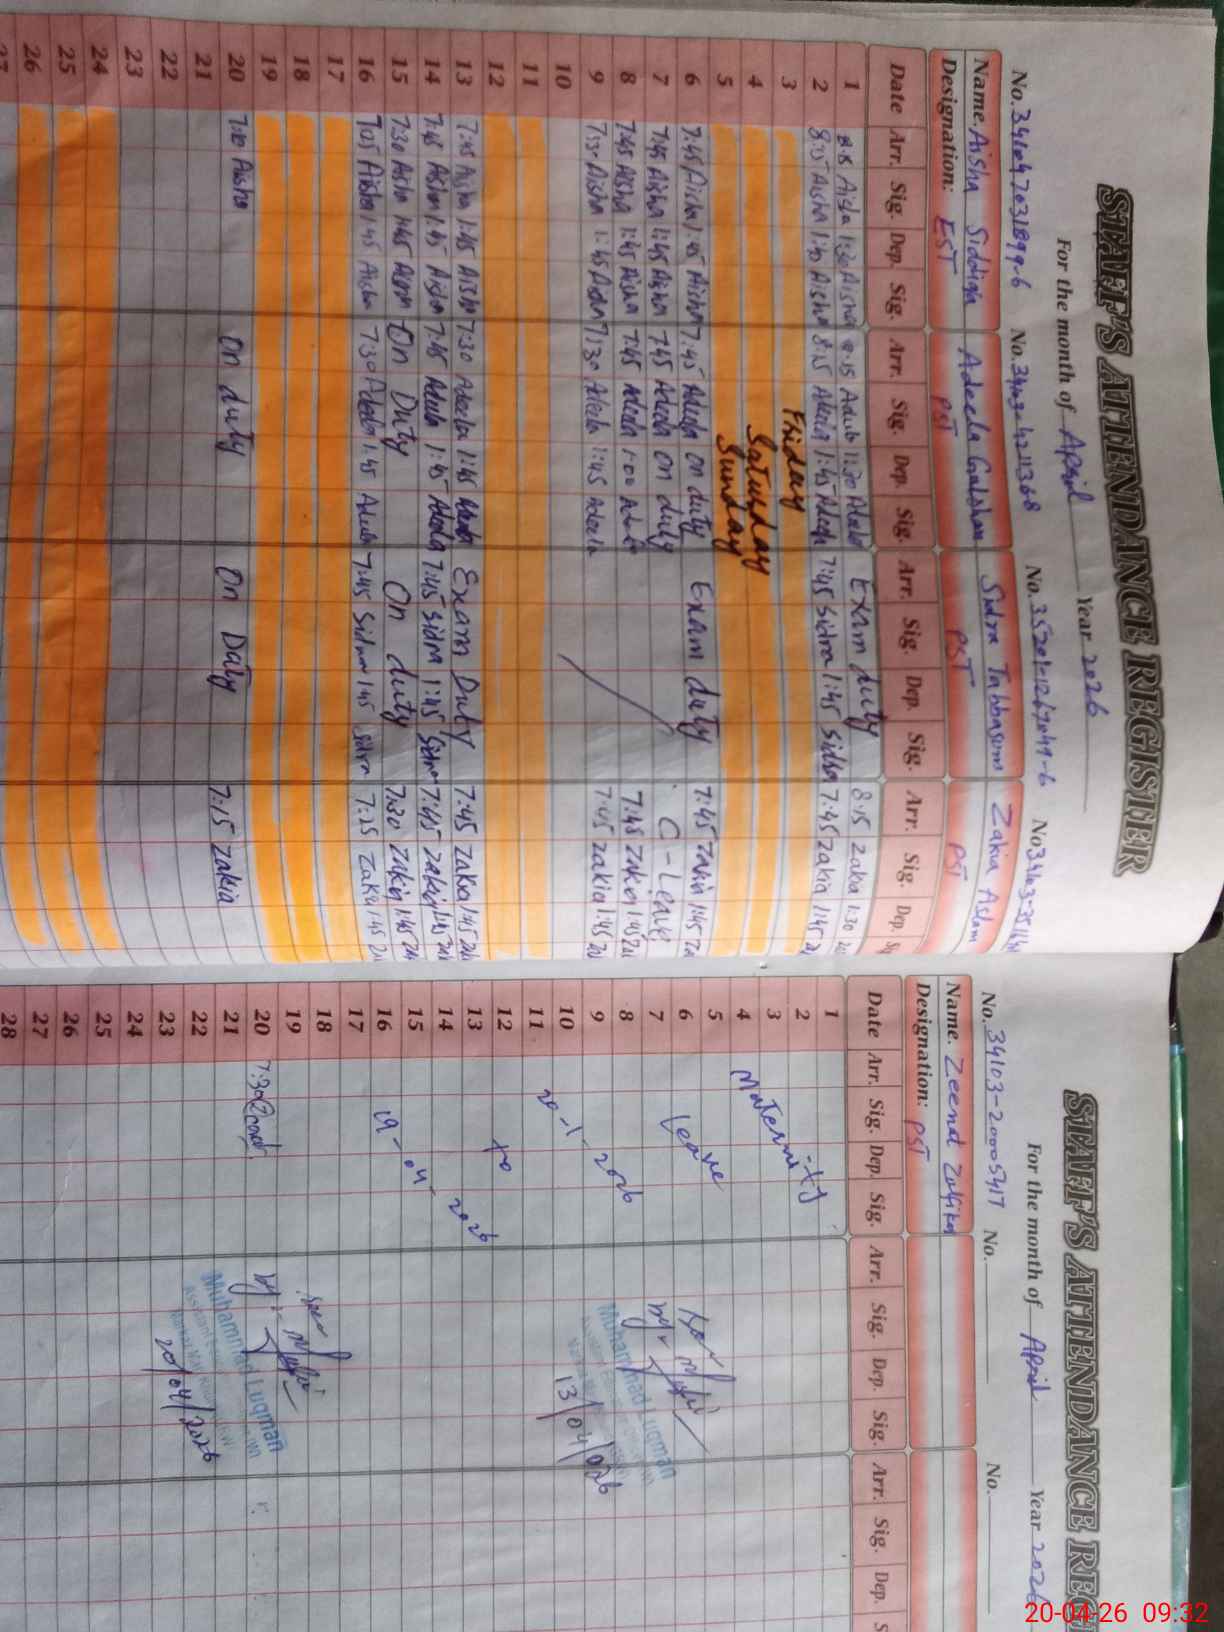 STAFF'S ATTENDANCE REGISTER
For the month of April Year 2026
No. No. No. No.
Name. Aisha Siddiqa Adeela Gulshan Sidra Tabbasum Zakia Aslam
Designation: EST PST PST PST
Date Arr. Sig. Dep. Sig. Arr. Sig. Dep. Sig. Arr. Sig. Dep. Sig. Arr. Sig. Dep.
1 Aisha 1:30 Aisha 8:15 Adeela 1:30 Adeela Exam duty 8:15 Zakia 1:30
2 8:15 Aisha Aisha 8:15 Adeela 1:45 Adeela 7:45 Sidra 1:45 Sidra 7:45 Zakia 1:45
3 Friday
4 Saturday
5 Sunday
6 7:45 Aisha 1:45 Aisha 7:45 Adeela on duty Exam duty 7:45 Zakia 1:45
7 7:45 Aisha 1:45 Aisha 7:45 Adeela on duty C-Leave
8 7:45 Aisha 1:45 Aisha 7:45 Adeela 1:00 Adeela 7:45 Zakia 1:45
9 Aisha 1:45 Aisha 7:30 Adeela 1:45 Adeela 7:45 Zakia 1:45
10
11
12
13 7:45 Aisha 1:45 Aisha 7:30 Adeela 1:45 Adeela Exam Duty 7:45 Zakia 1:45
14 7:45 Aisha 1:45 Aisha 7:45 Adeela 1:45 Adeela 7:45 Sidra 1:45 Sidra 7:45 Zakia 1:45
15 7:30 Aisha 1:45 Aisha On Duty On duty 7:30 Zakia 1:45
16 Aisha 1:45 Aisha 7:30 Adeela 1:45 Adeela 7:45 Sidra 1:45 Sidra 7:25 Zakia 1:45
17
18
19
20 Aisha On duty On Duty 7:15 Zakia
21
22
23
24
25
26
27
STAFF'S ATTENDANCE REG
For the month of April Year 2026
No. 34103-2000 No. No.
Name. Zeenat Zulfiqar
Designation: PST
Date Arr. Sig. Dep. Sig. Arr. Sig. Dep. Sig. Arr. Sig. Dep. S
1
2
3
4 Maternity
5
6 Leave
7
8
9
10 20-1-2026
11
12 to
13
14
15
16 19-04-2026
17
18
19
20 7:30
21
22
23
24
25
26
27
28
Muhammad Luqman
13/04/026
Muhammad Luqman
20/04/2026
20-04-26 09:32